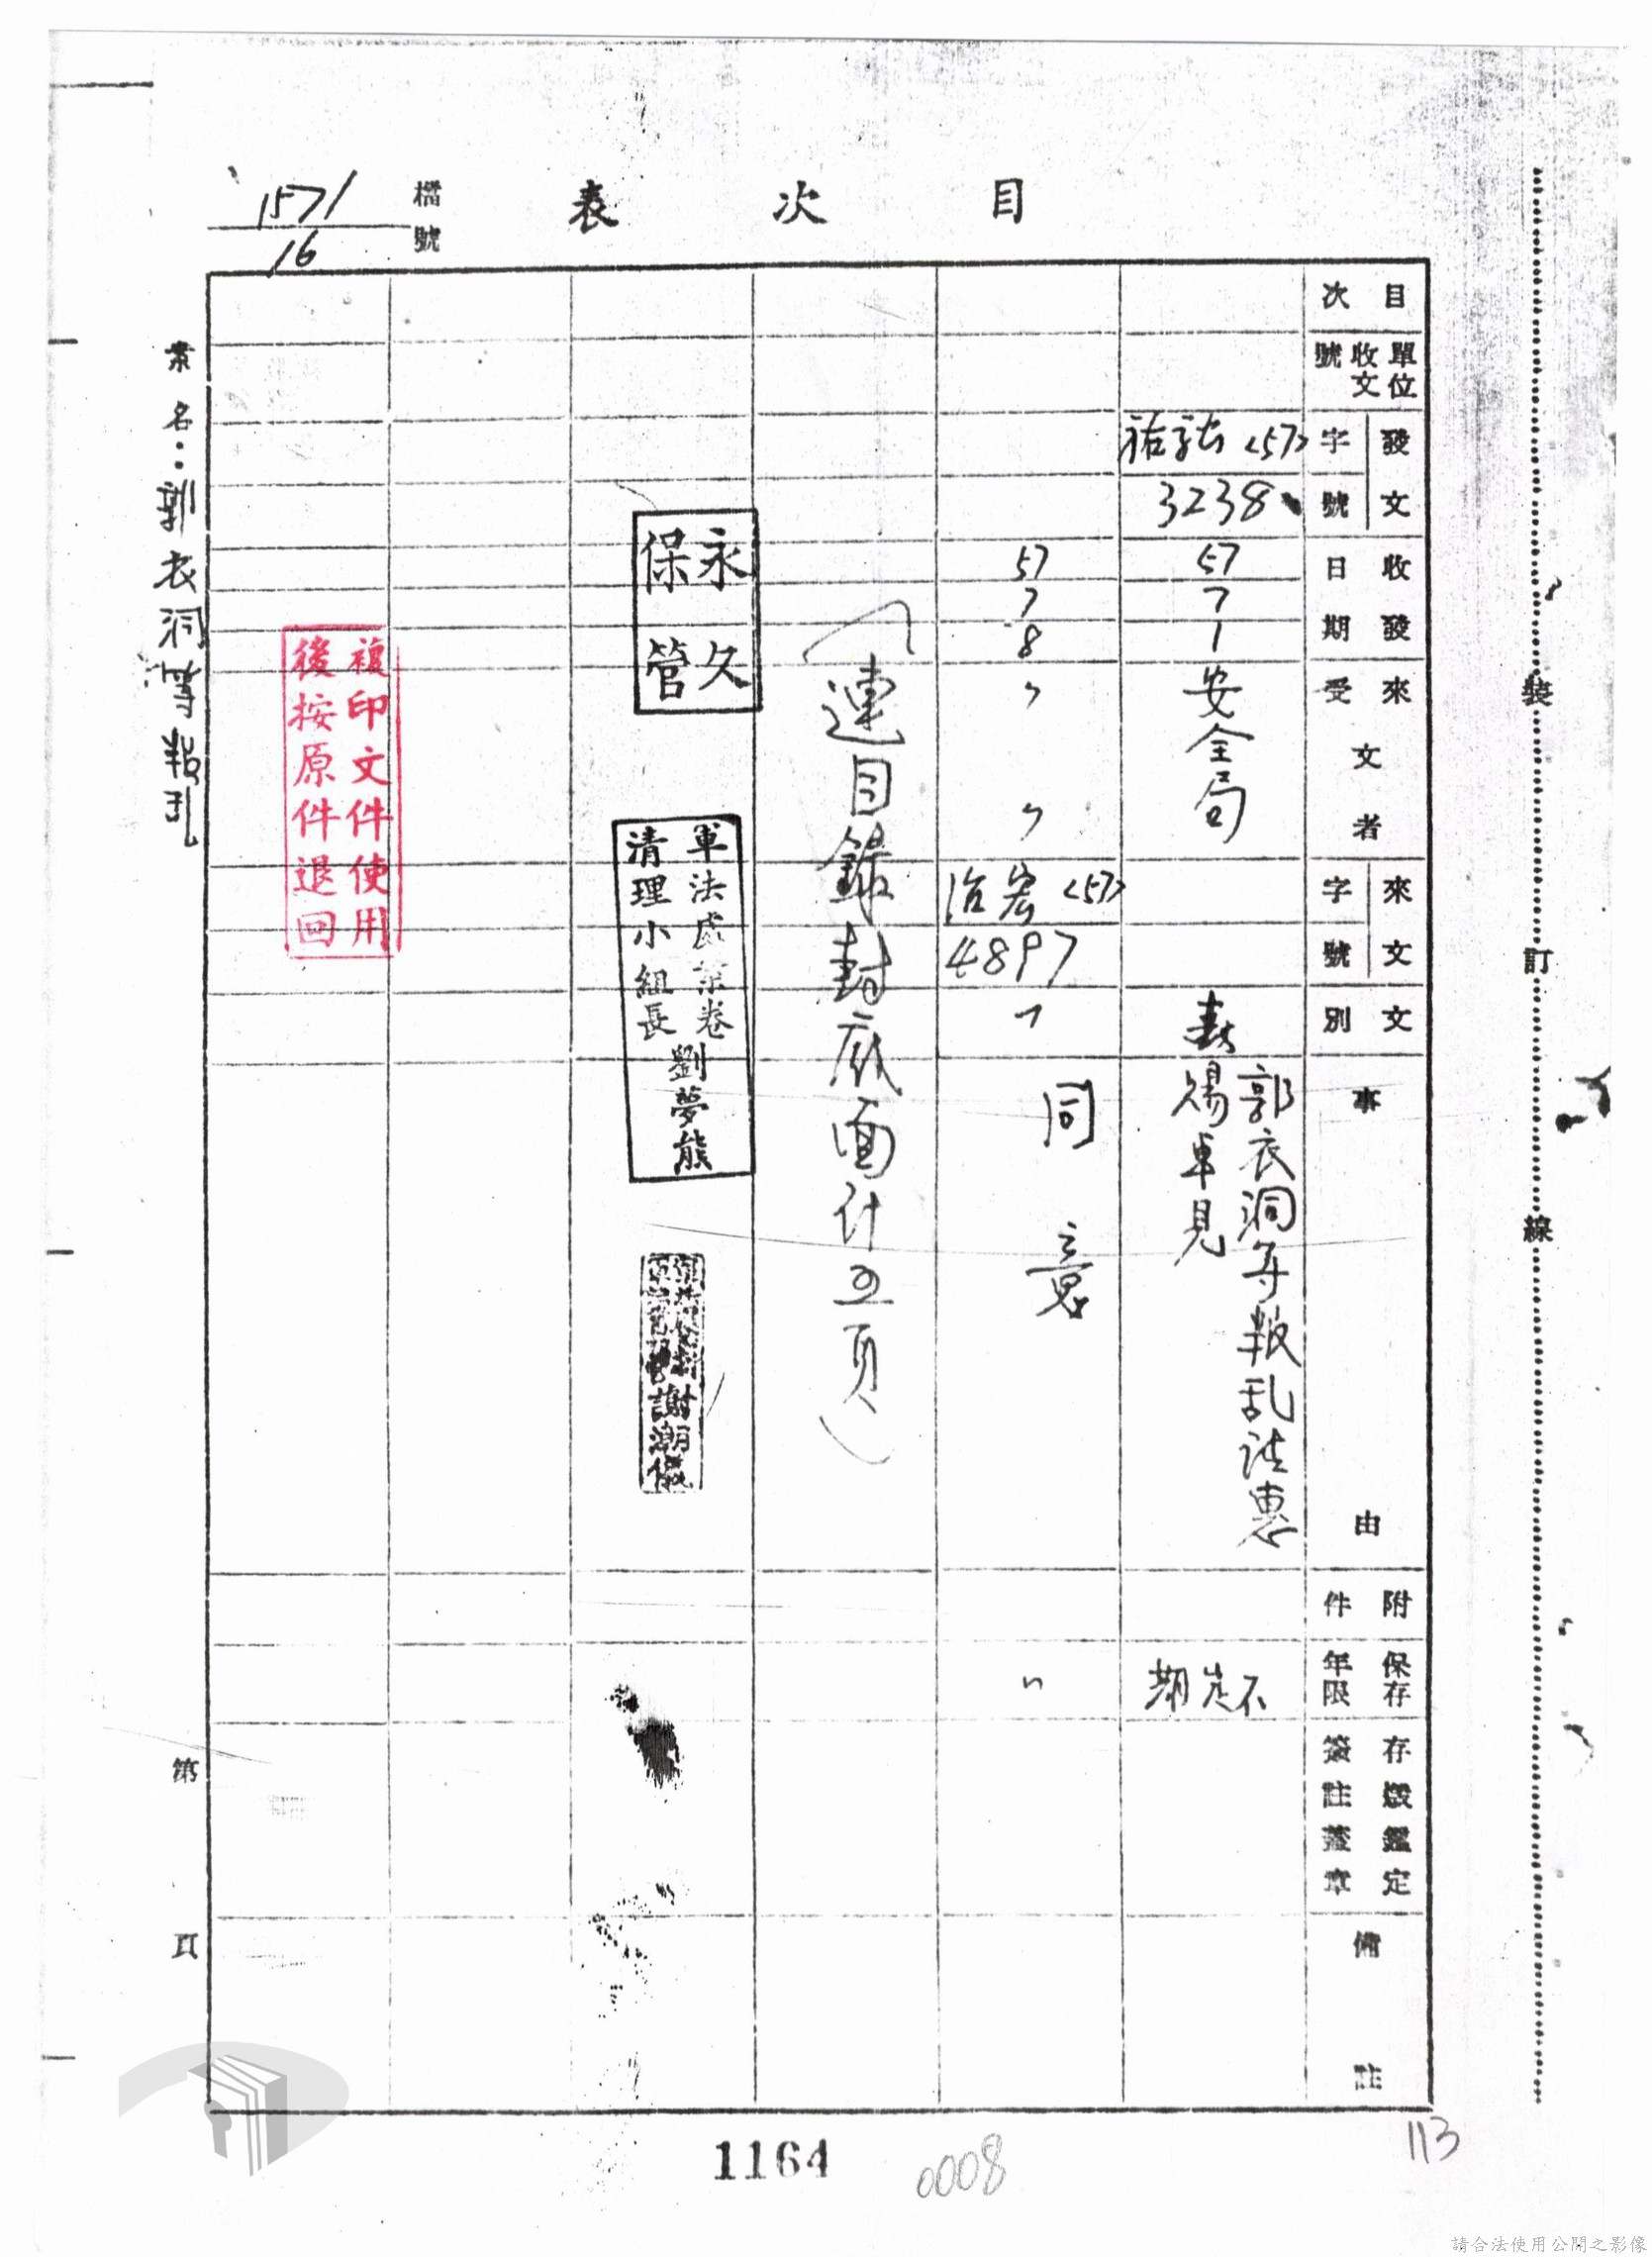 目次表
檔號
1571
16
目次
單位收文號
發文
字號
收發日期
來文受者
來文
字號
文別
事由
附件
保存年限
存燬鑑定簽註蓋章
備註
<57>
3238
57
7
1
安全局
郭衣洞等叛乱請惠
賜卓見
不定期
57
7
8
〃
〃
<57>
4897
同意
〃
(連目錄封底面計五頁)
永久
保管
軍法處案卷
清理小組長
劉夢熊
謝潮儀
複印文件使用
後按原件退回
案名:郭衣洞等叛乱
第 頁
裝訂線
1164
0008
113
請合法使用公開之影像